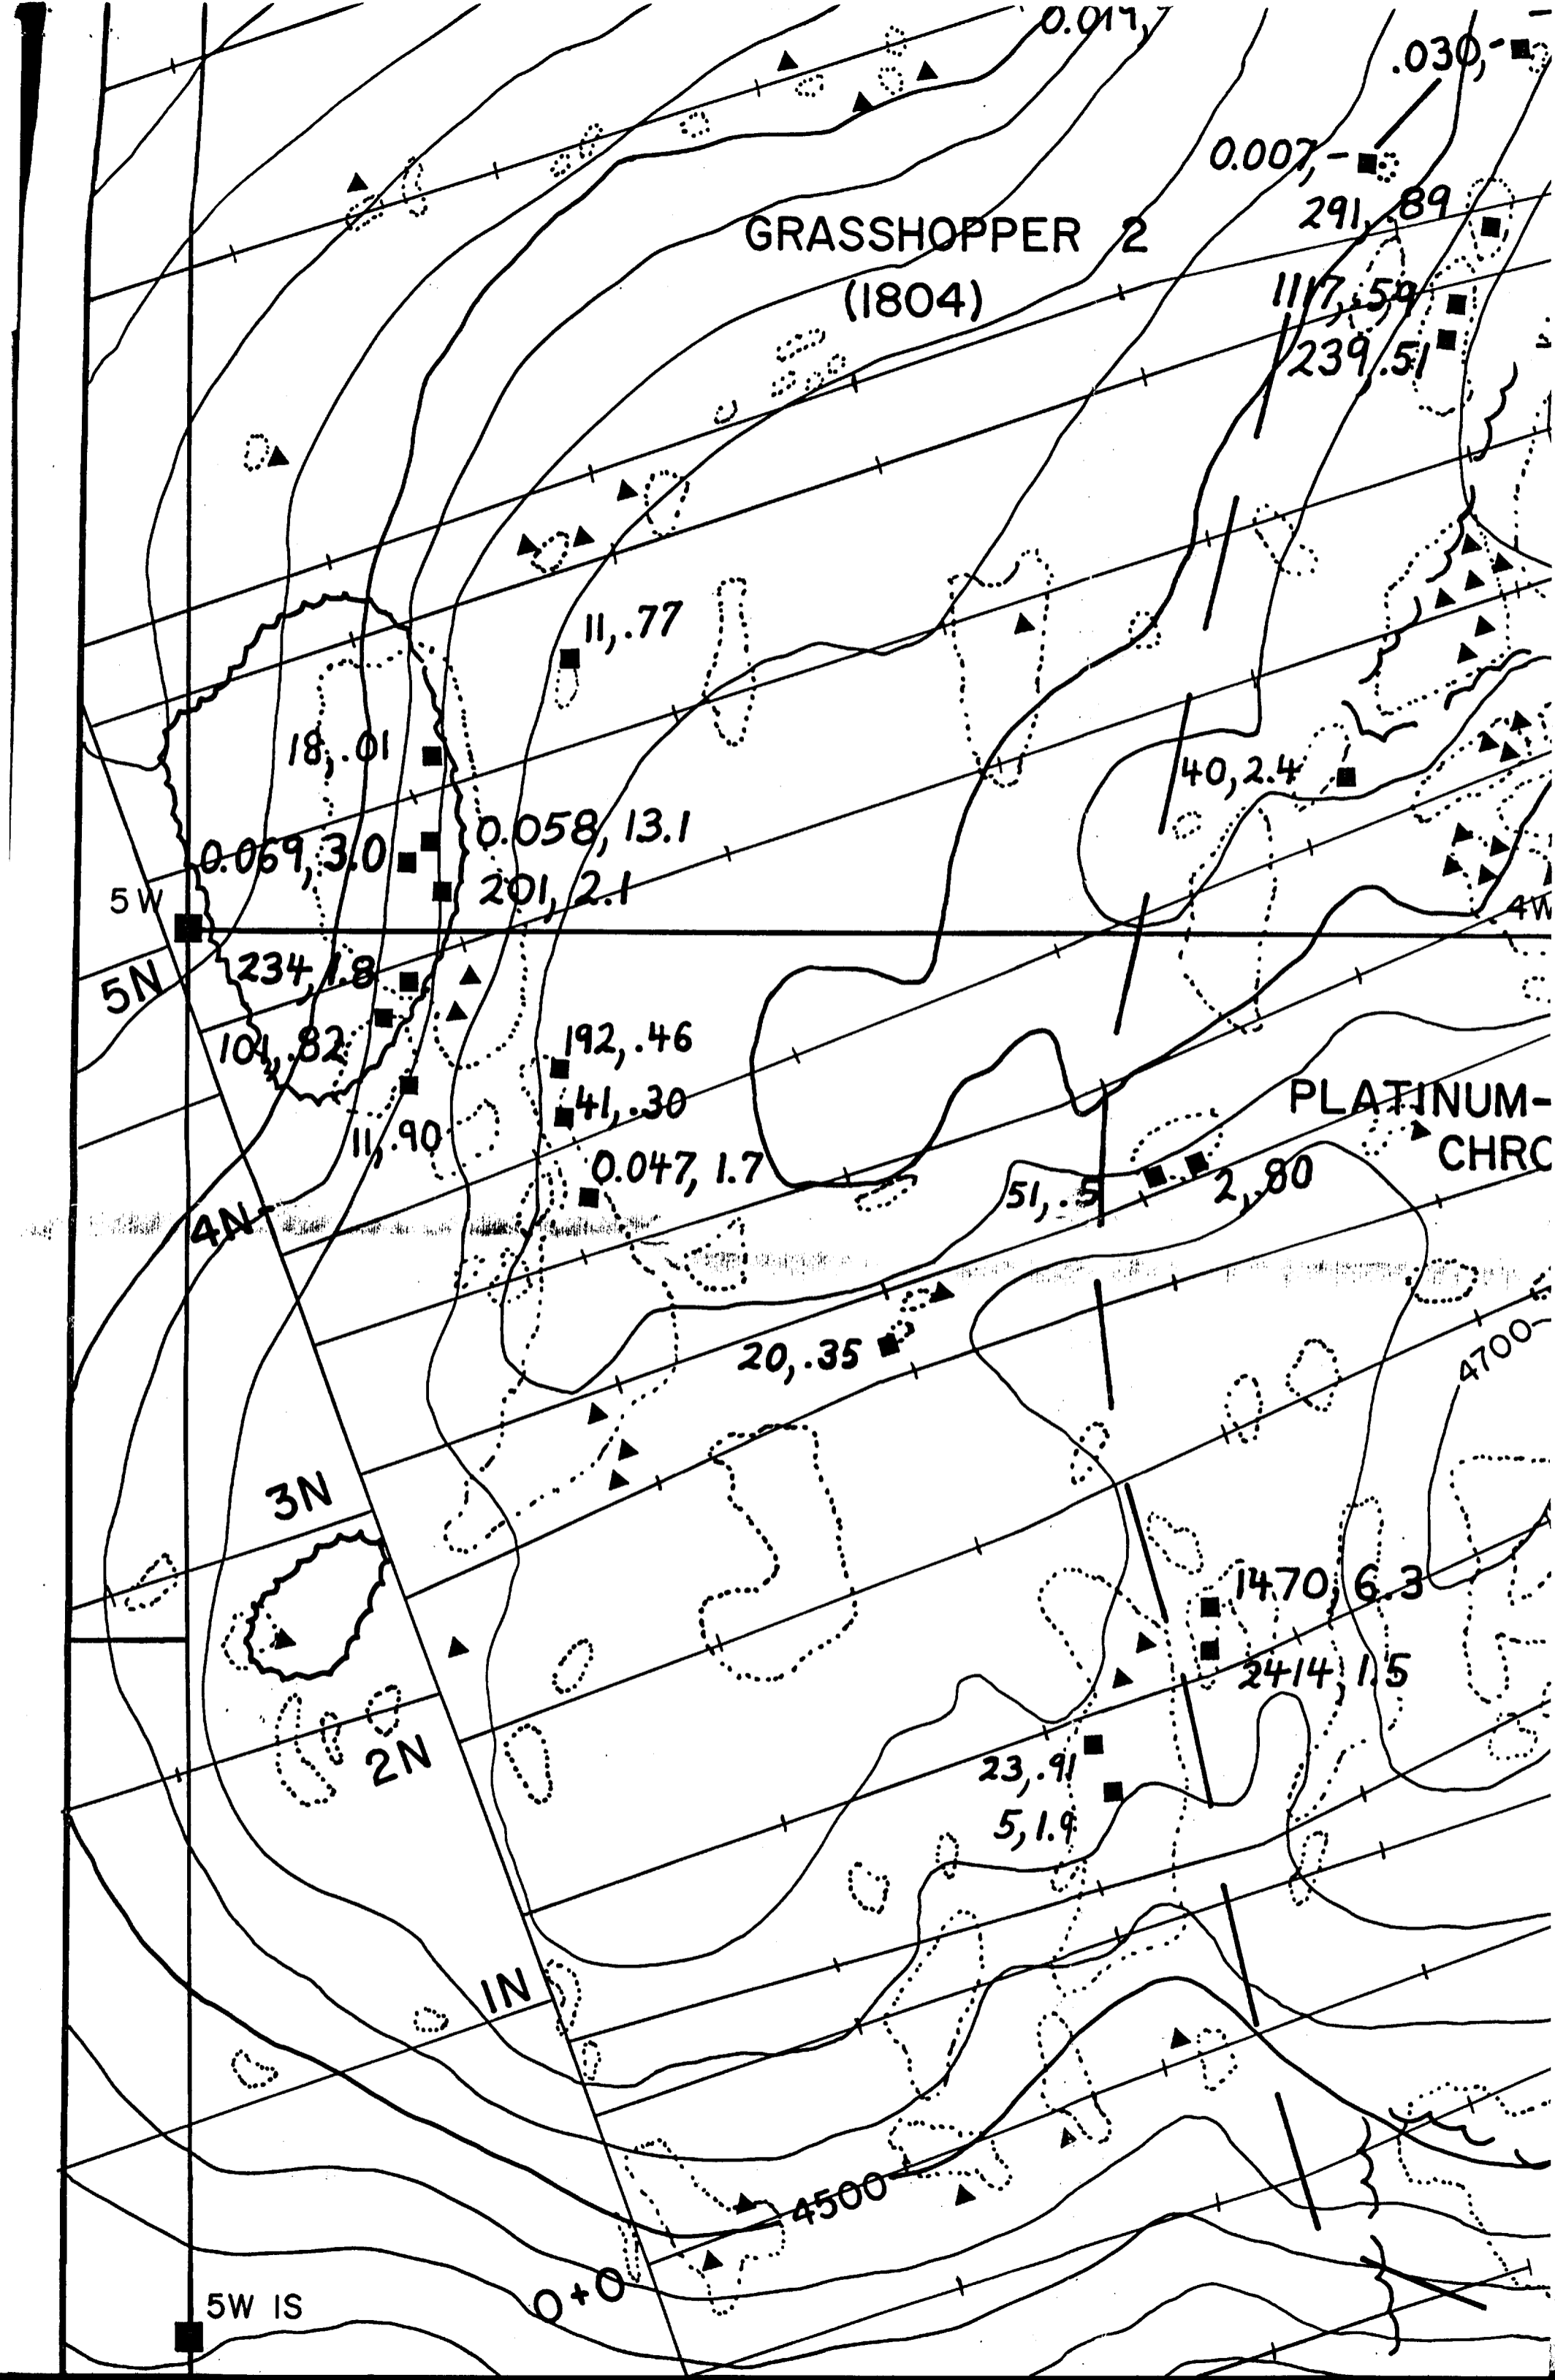 0.017,
.030,-
0.007,-
291,.89
GRASSHOPPER 2
(1804)
1117,.5,9
239,.51
11,.77
18,.01
40,2.4
0.058,13.1
0.069,3.0
201,2.1
5W
4W
5N
234,1.8
101,.82
192,.46
41,.30
PLATINUM-
CHRO
11,.90
0.047,1.7
51,.5
2,.80
4N
20,.35
4700
3N
1470,6.3
2414,1.5
2N
23,.91
5,1.9
1N
4500
0+0
5W 1S